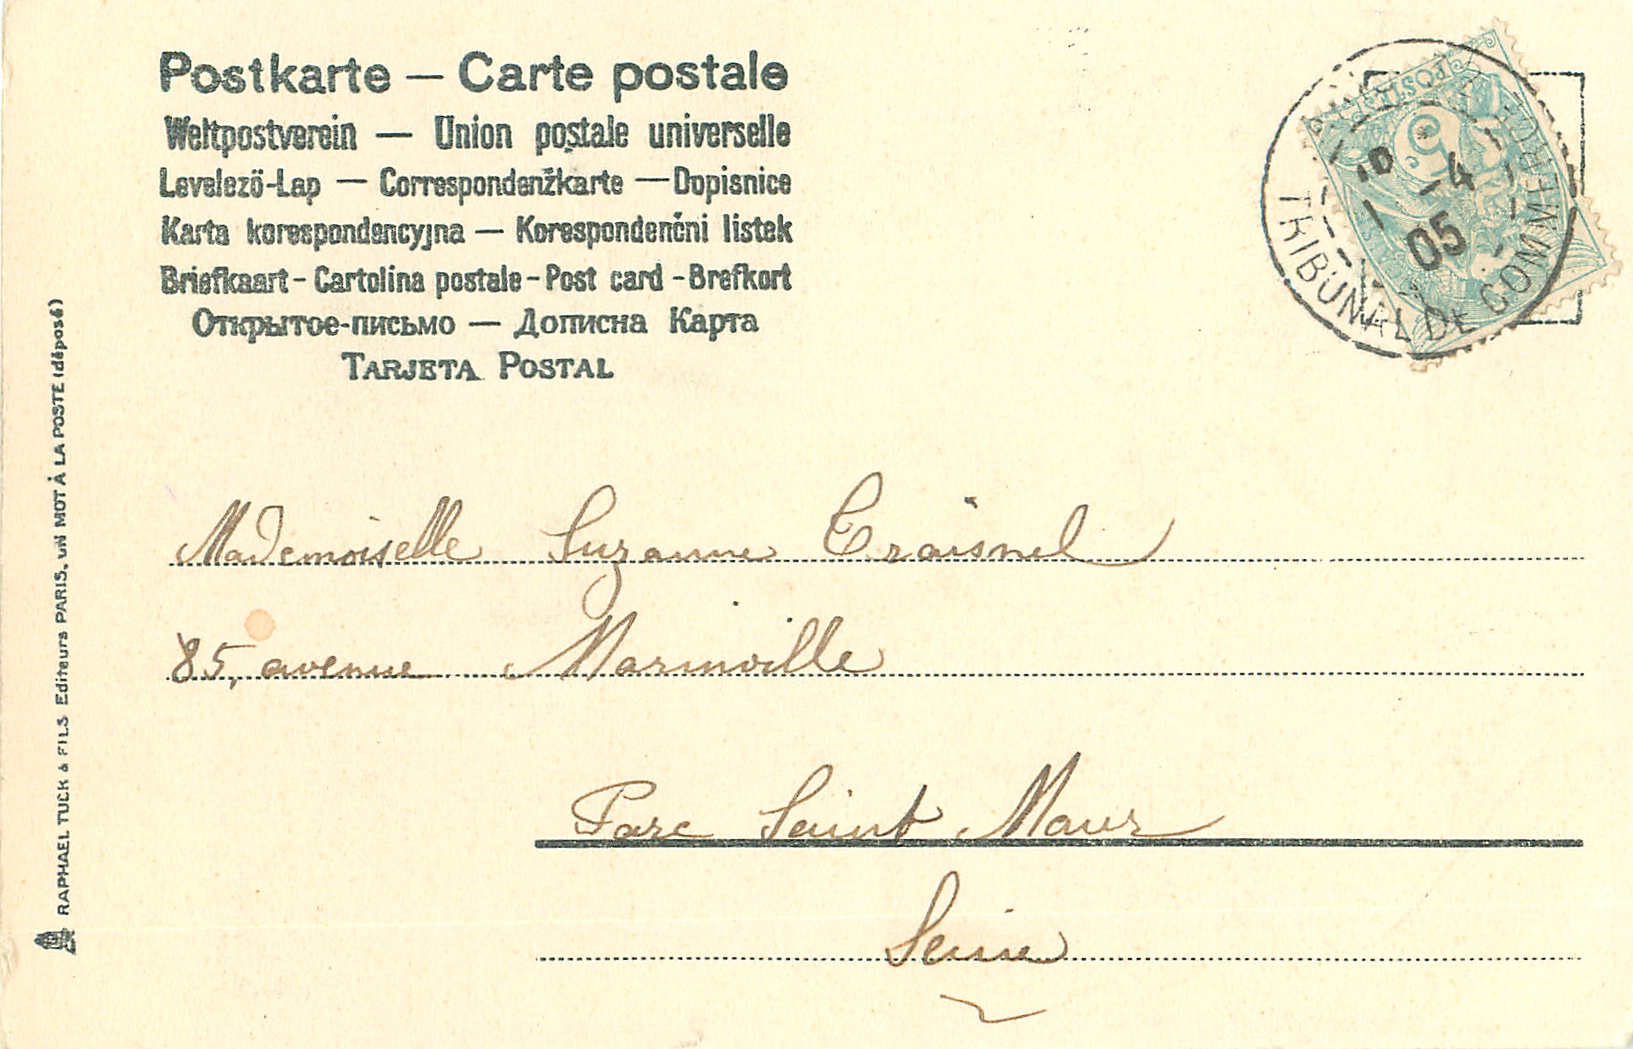 Postkarte — Carte postale
Weltpostverein — Union postale universelle
Levelezö-Lap — Correspondenžkarte — Dopisnice
Karta korespondencyjna — Korespondenční listek
Briefkaart - Cartolina postale - Post card - Brefkort
Открытое-письмо — Дописна Карта
TARJETA POSTAL
TRIBUNAL DE COMMERCE
POSTES
5
c
-4
05
Mademoiselle Suzanne Traisnel
85, avenue Marinville
Parc Saint Maur
Seine
RAPHAEL TUCK & FILS Editeurs PARIS. UN MOT À LA POSTE (déposé)